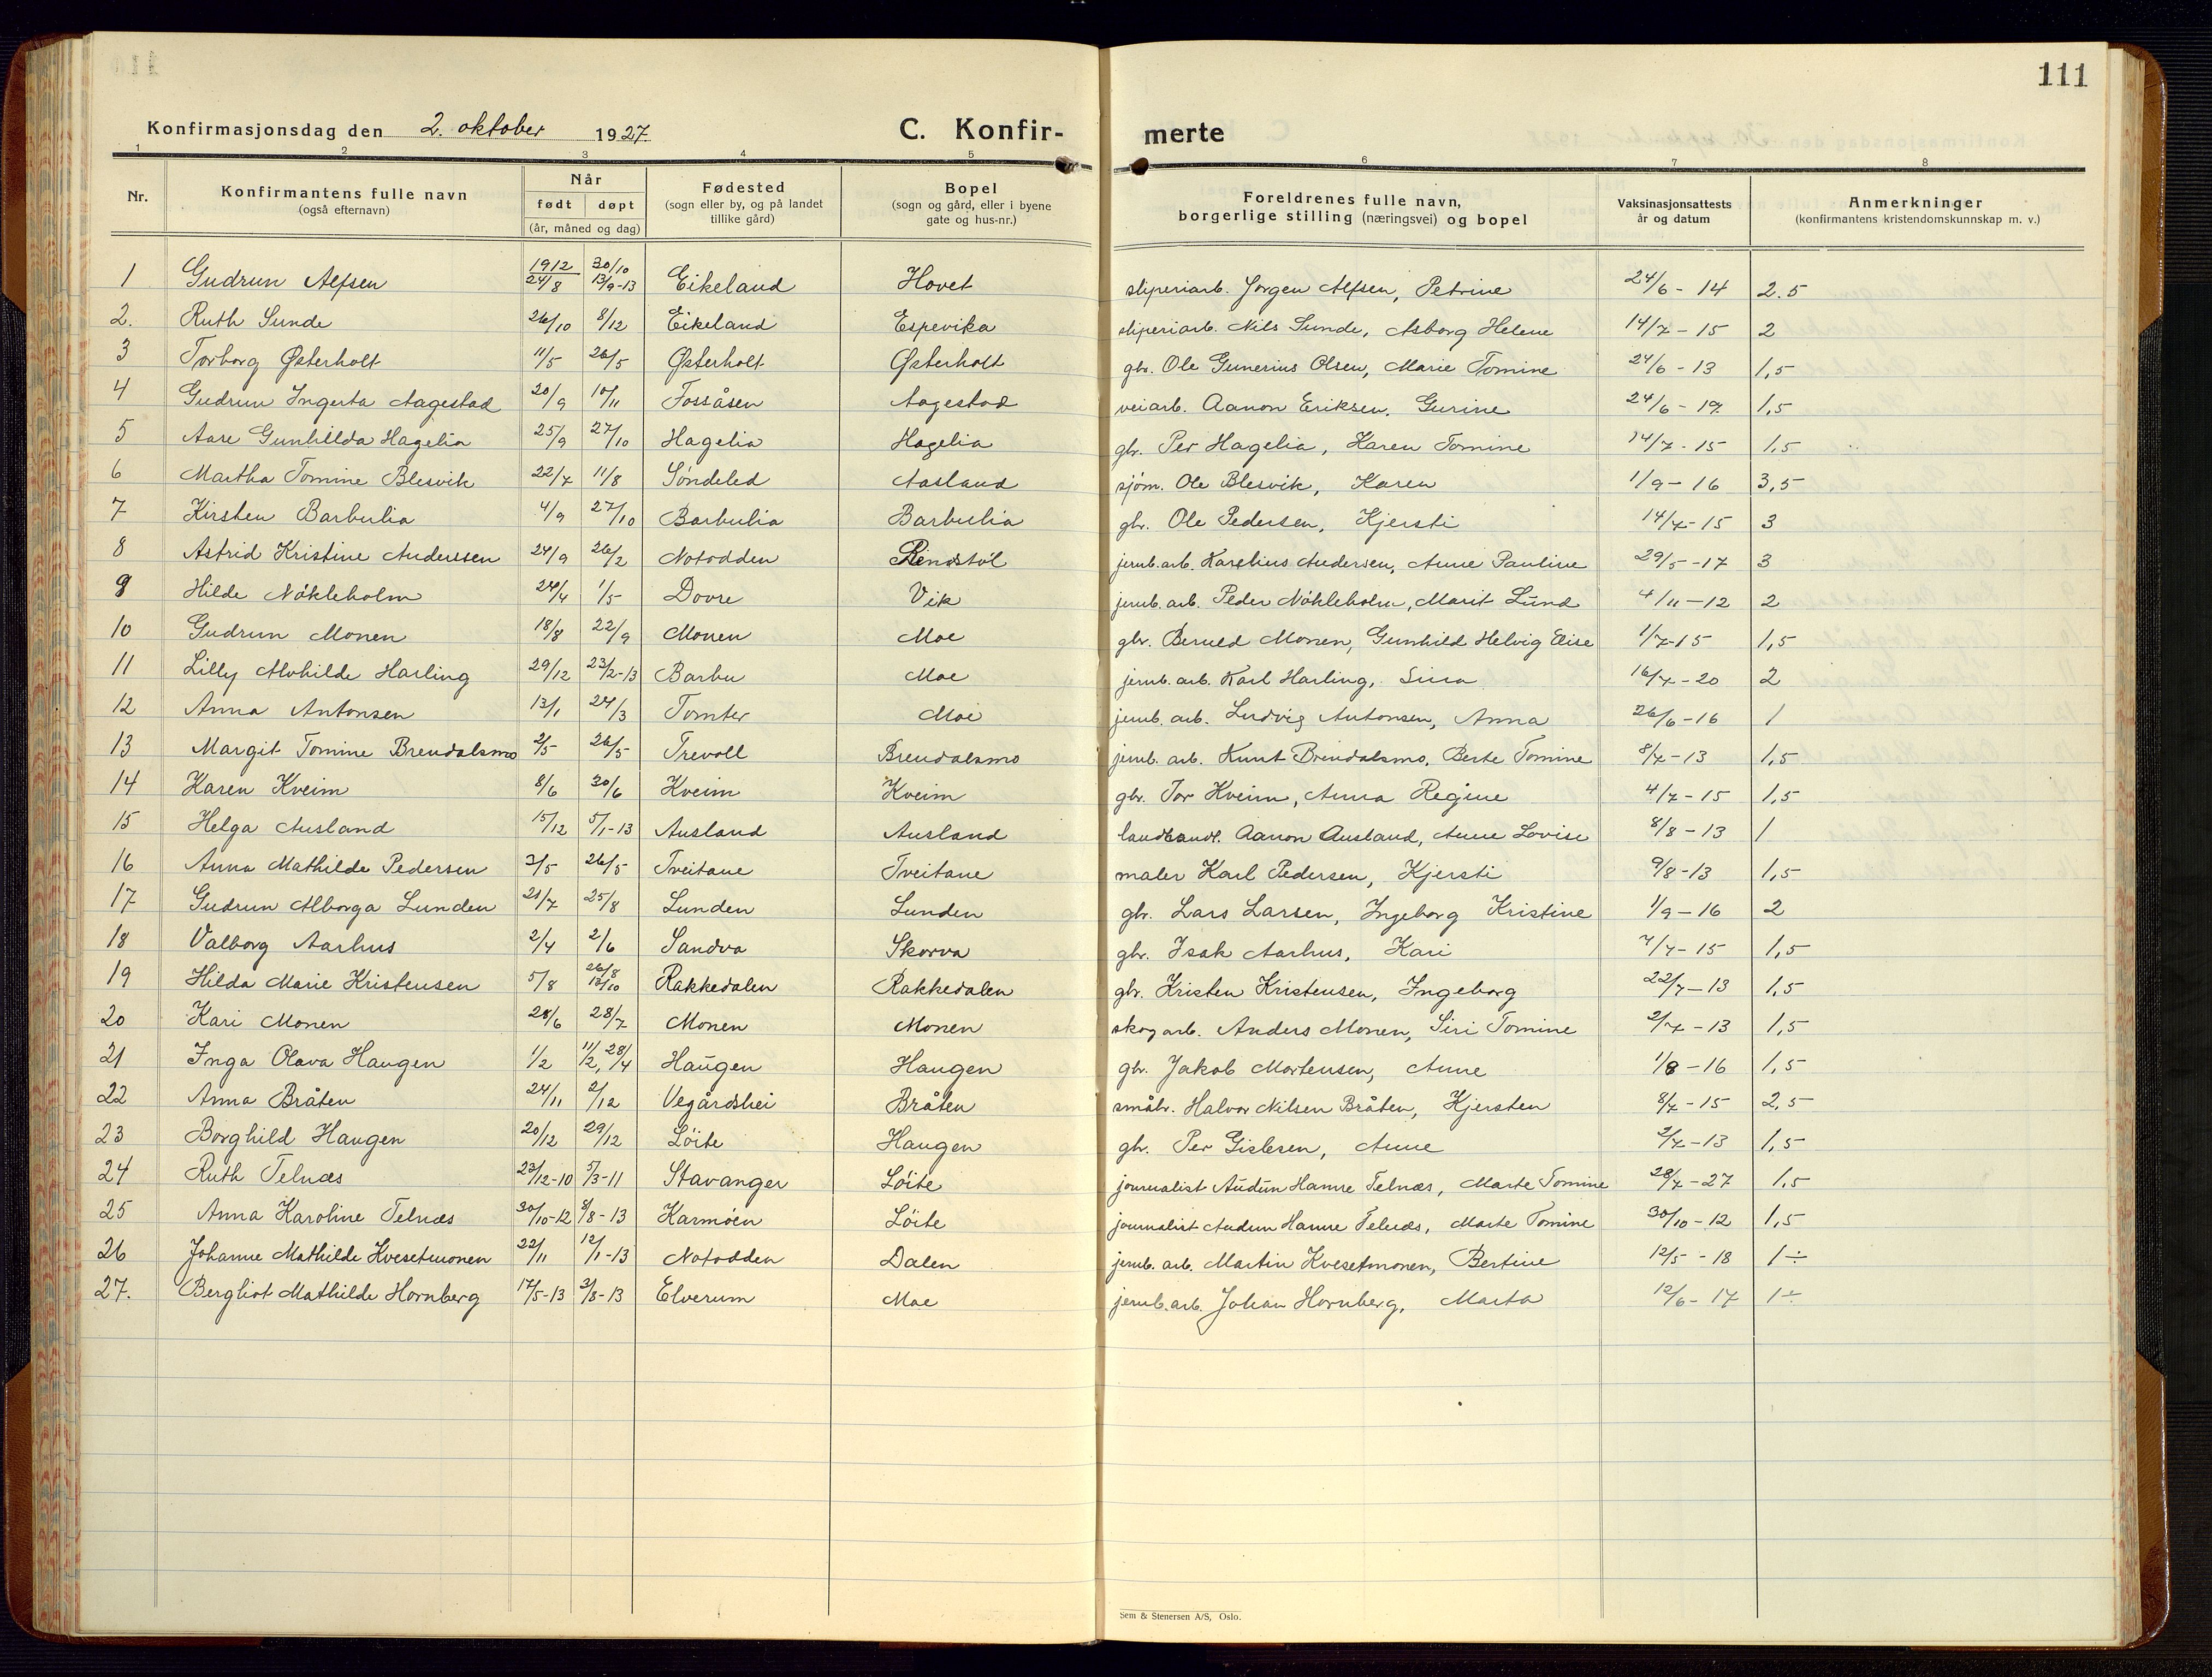 111
Konfirmasjonsdag den 2. oktober 1927. C. Konfir- merte
1 2 3 4 5 6 7 8
Nr. Konfirmantens fulle navn (også efternavn) Når født døpt (år, måned og dag) Fødested (sogn eller by, og på landet tillike gård) Bopel (sogn og gård, eller i byene gate og hus-nr.) Foreldrenes fulle navn, borgerlige stilling (næringsvei) og bopel Vaksinasjonsattests år og datum Anmerkninger (konfirmantens kristendomskunnskap m. v.)
1 Gudrun Alfsen 1912 24/8 30/10 13/9-13 Eikeland Hovet sliperiarb. Jørgen Alfsen, Petrine 24/6 - 14 2.5
2. Ruth Sunde 26/10 8/12 Eikeland Espevika sliperiarb. Nils Sunde, Asborg Helene 14/7 - 15 2
3 Torborg Østerholt 11/5 26/5 Østerholt Østerholt gbr. Ole Gunerius Olsen, Marie Tomine 24/6 - 13 1,5
4 Gudrun Ingerta Aagestad 20/9 10/11 Fossåsen Aagestad veiarb. Aanon Eriksen, Gurine 24/6 - 17 1,5
5 Aase Gunhilda Hagelia 25/9 27/10 Hagelia Hagelia gbr. Per Hagelia, Karen Tomine 14/7 - 15 1,5
6 Martha Tomine Blesvik 22/7 11/8 Søndeled Aasland sjøm. Ole Blesvik, Karen 1/9 - 16 3,5
7 Kirsten Barbulia 4/9 27/10 Barbulia Barbulia gbr. Ole Pedersen, Kjersti 14/7 - 15 3
8 Astrid Kristine Anderssen 24/9 26/2 Notodden Rendstøl jernb.arb. Karelius Andersen, Anne Pauline 29/5 - 17 3
9 Hilde Nökleholm 24/4 1/5 Dovre Vik jernb. arb. Peder Nökleholm, Marit Lund 4/11 - 12 2
10 Gudrun Monen 18/8 22/9 Monen Moe gbr. Beruld Monen, Gunhild Helvig Elise 1/7-15 1,5
11 Lilly Alvhilde Harling 29/12 23/2-13 Barbu Moe jernb. arb. Karl Harling, Sina 16/7 - 20 2
12 Anna Antonsen 13/1 24/3 Tomter Moe jernb. arb. Ludvig Antonsen, Anna 26/6 - 16 1
13 Margit Tomine Brendalsmo 2/5 26/5 Trevoll Brendalsmo jernb. arb. Knut Brendalsmo, Berte Tomine 8/7 - 13 1,5
14 Karen Kveim 8/6 30/6 Kveim Kveim gbr. Tor Kveim, Anna Regine 4/7 - 15 1,5
15 Helga Ausland 15/12 5/1-13 Ausland Ausland landhandl. Aanon Ausland, Anne Lovise 8/8 - 13 1
16 Anna Mathilde Pedersen 3/5 26/5 Tveitane Tveitane maler Karl Pedersen, Kjersti 9/8 - 13 1,5
17 Gudrun Alborga Lunden 21/7 25/8 Lunden Lunden gbr. Lars Larsen, Ingeborg Kristine 1/9 - 16 2
18 Valborg Aarhus 2/4 2/6 Sandva Skorva gbr. Isak Aarhus, Kari 7/7 - 15 1,5
19 Hilda Marie Kristensen 5/8 26/8 13/10 Rakkedalen Rakkedalen gbr. Kristen Kristensen, Ingeborg 22/7 - 13 1,5
20 Kari Monen 28/6 28/7 Monen Monen skogarb. Anders Monen, Siri Tomine 2/7 - 13 1,5
21 Inga Olava Haugen 1/2 11/2, 28/4 Haugen Haugen gbr. Jakob Mortensen, Anne 1/8 - 16 1,5
22 Anna Bråten 24/11 2/12 Vegårdshei Bråten småbr. Halvor Nilsen Bråten, Kjersten 8/7 - 15 2,5
23 Borghild Haugen 20/12 29/12 Löite Haugen gbr. Per Gislesen, Anne 2/7 - 13 1,5
24 Ruth Telnæs 23/12-10 5/3-11 Stavanger Löite journalist Audun Hamre Telnæs, Marte Tomine 28/7 - 27 1,5
25 Anna Karoline Telnæs 30/10-12 8/8-13 Karmöen Löite journalist Audun Hamre Telnæs, Marte Tomine 30/10 - 12 1,5
26 Johanne Mathilde Kvesetmonen 22/11 12/1-13 Notodden Dalen jernb. arb. Martin Kvesetmonen, Bertine 12/5 - 18 1÷
27. Bergliot Mathilde Hornberg 17/5-13 3/8-13 Elverum Moe jernb.arb. Johan Hornberg, Marta 12/6 - 17 1÷
Sem & Stenersen A/S, Oslo.